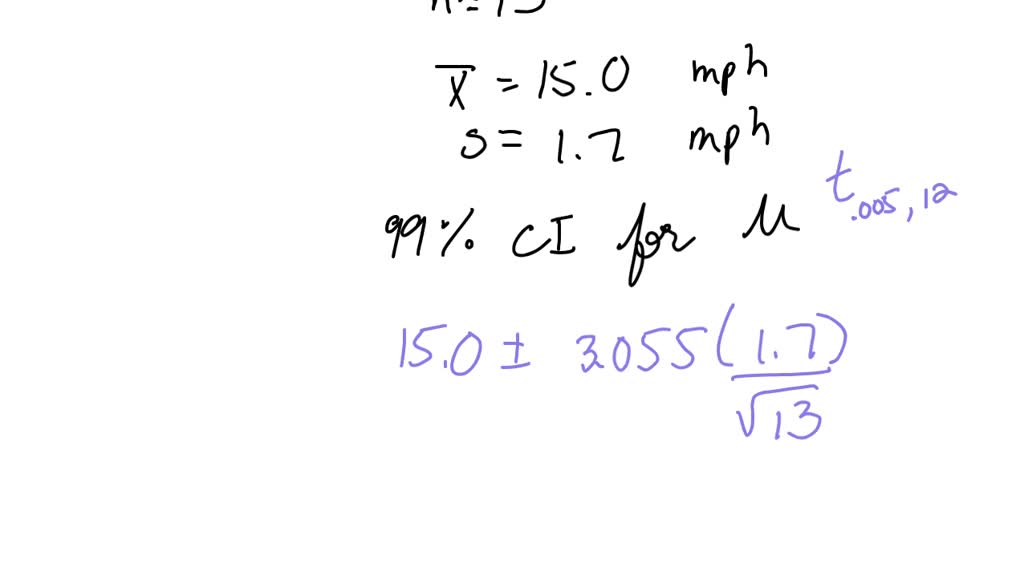 x̄ = 15.0 mph
s = 1.7 mph
99% CI for μ t.005, 12
15.0 ± 3.055 (1.7)/√13